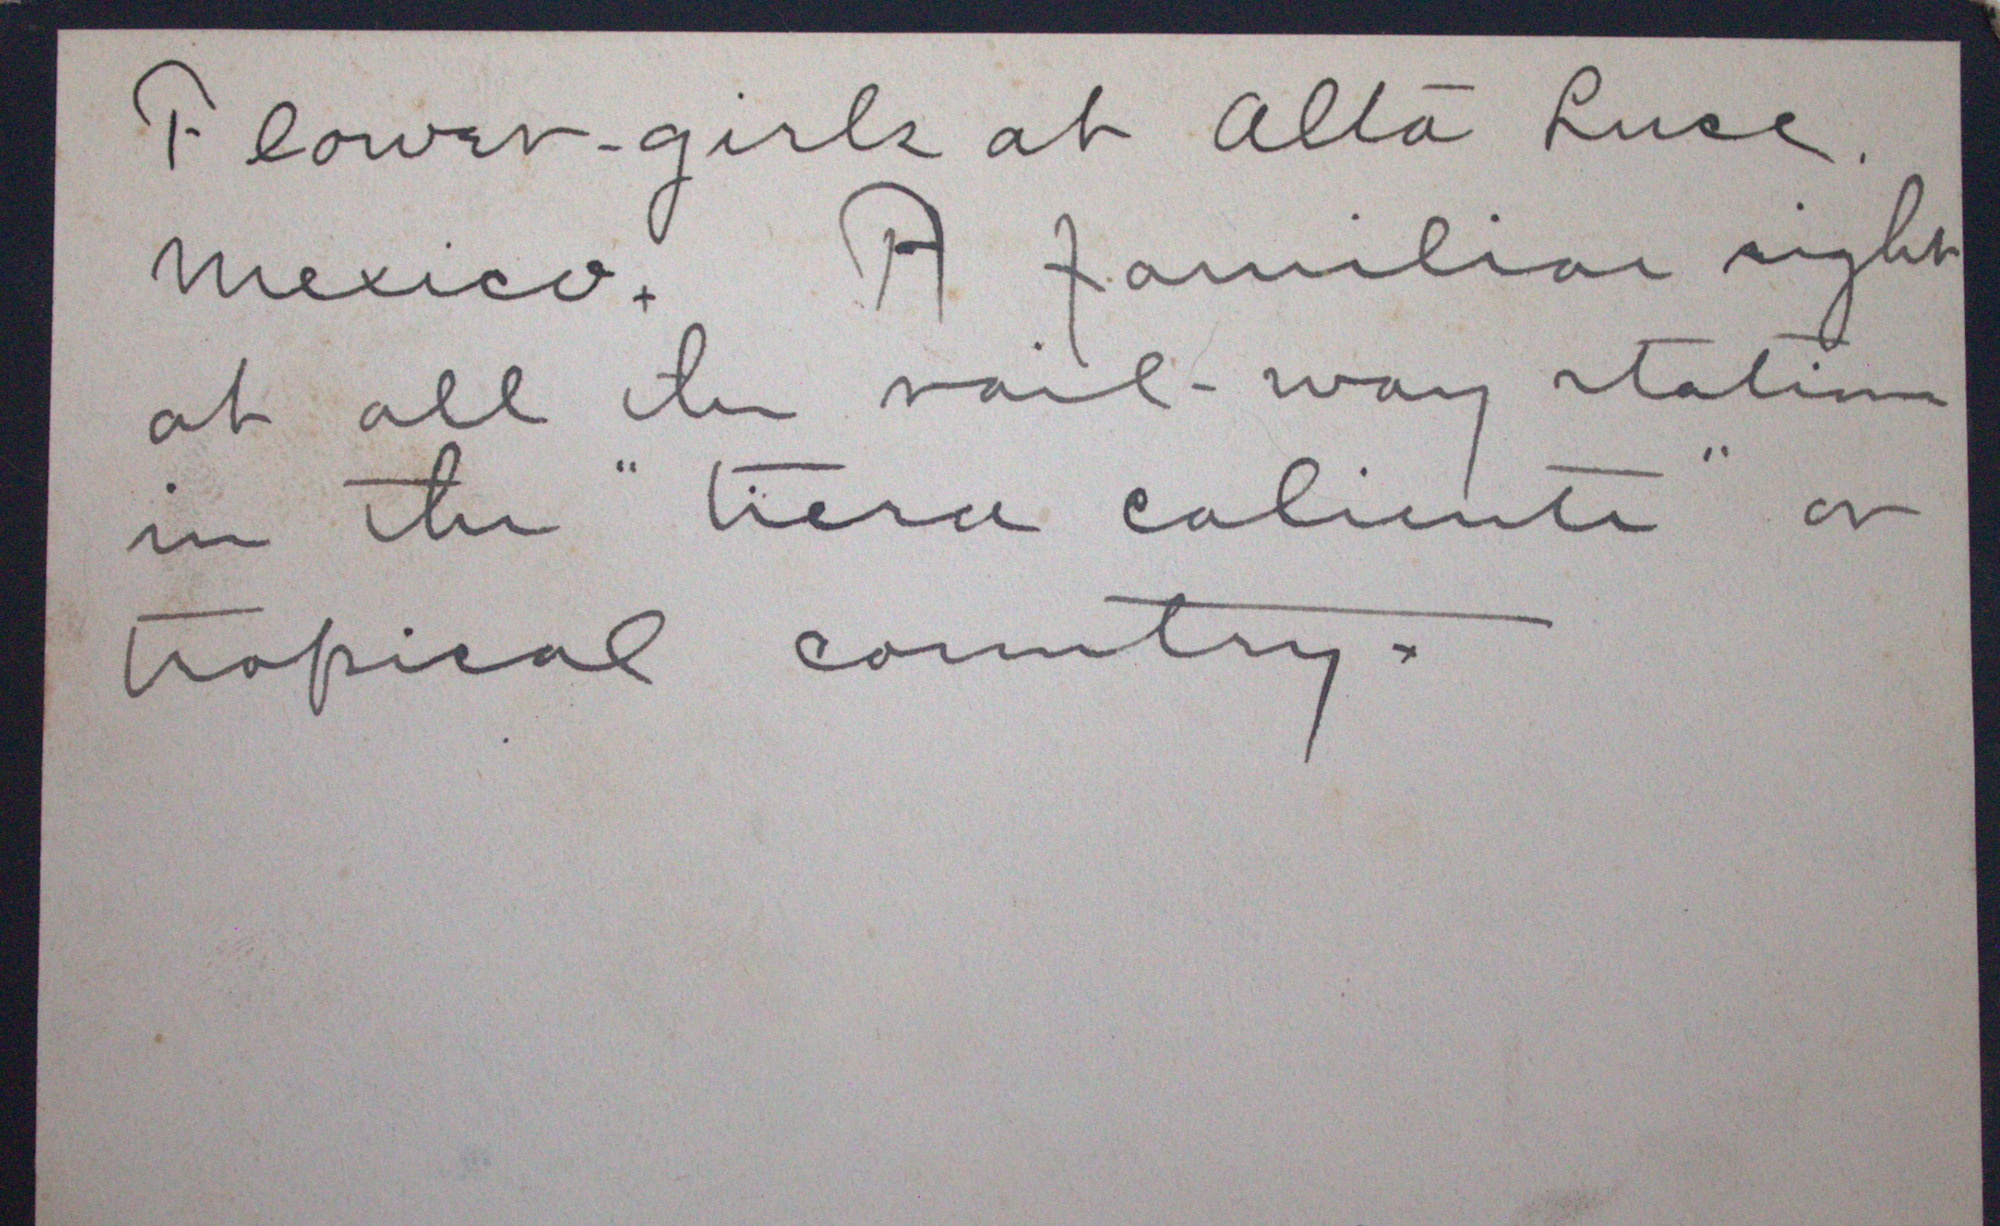 Flower-girls at Alta Luce.
Mexico. A familiar sight
at all the rail-way stations
in the "tiera caliente" or
tropical country.